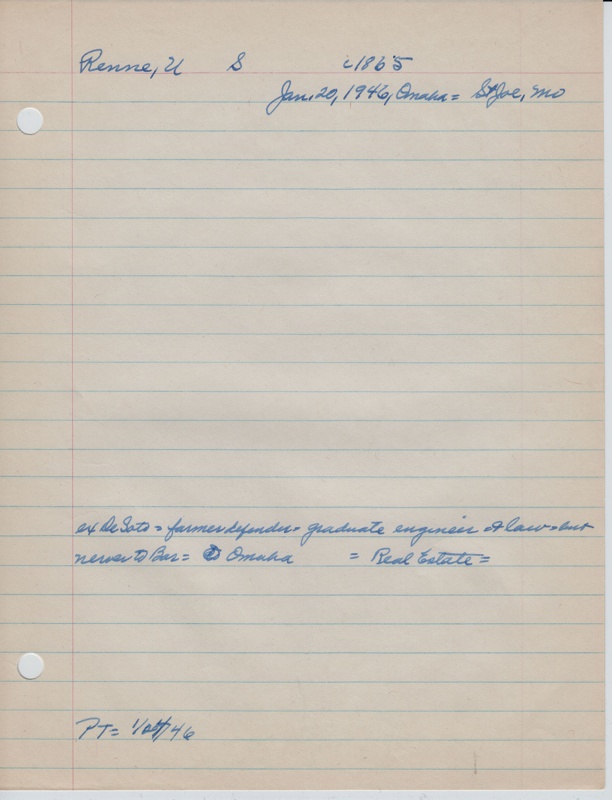 Renne, U S c1865
Jan. 20, 1946, Omaha = St Joe, Mo
ex De Soto = farmer defender = graduate engineer & law = but
never to Bar = Omaha = Real Estate =
PT = 1/24/46